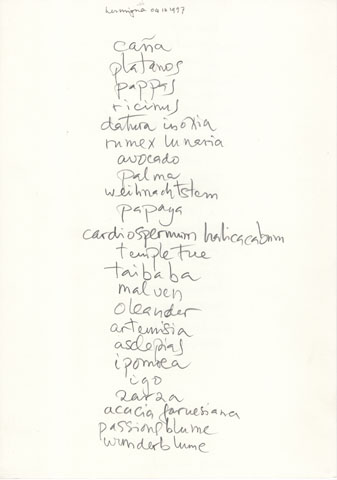 caña
platanos
pappas
ricinus
datura inoxia
rumex lunaria
avocado
palma
weihnachtstern
papaya
cardiospermum halicacabum
taibaba
malven
oleander
artemisia
asclepias
ipomea
igo
zarza
acacia farnesiana
passionsblume
wunderblume